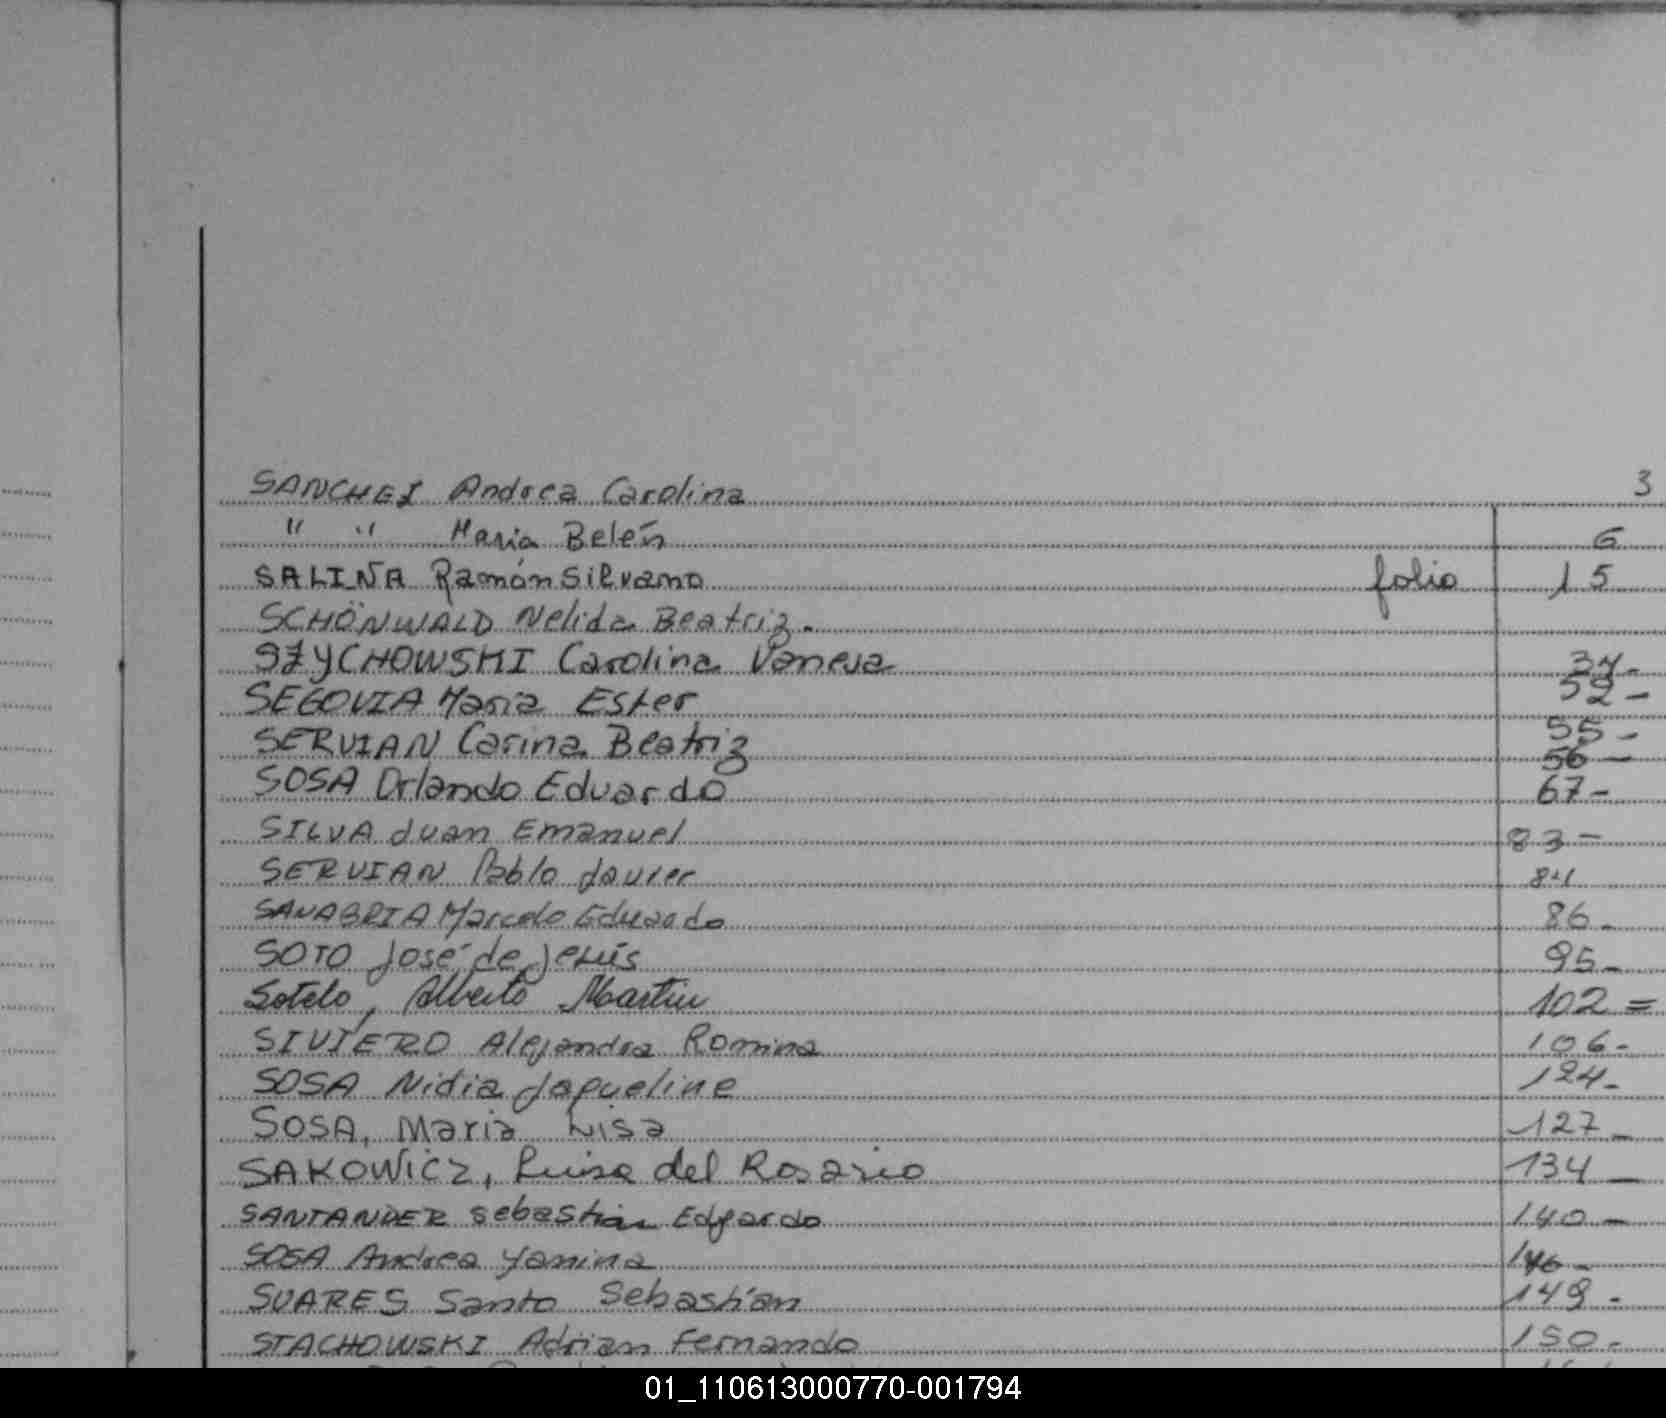 SANCHEZ Andrea Carolina 3
" " Maria Belén 6
SALINA Ramón Silvano folio 15
SCHÖNWALD Nelida Beatriz.
SZYCHOWSKI Carolina Vanesa 34-
SEGOVIA Maria Ester 52-
SERVIAN Carina Beatriz 55-
56-
SOSA Orlando Eduardo 67-
SILVA Juan Emanuel 83-
SERVIAN Pablo Javier 84
SANABRIA Marcelo Eduardo 86-
SOTO José de Jesús 95-
Sotelo, Alberto Martin 102=
SIVIERO Alejandra Romina 106-
SOSA Nidia Jaqueline 124-
SOSA, Maria Lisa 127-
SAKOWICZ, Luisa del Rosario 134-
SANTANDER Sebastian Edgardo 140-
SOSA Andrea Yanina 146-
SUARES Santo Sebastián 149-
STACHOWSKI Adrian Fernando 150-
01_110613000770-001794